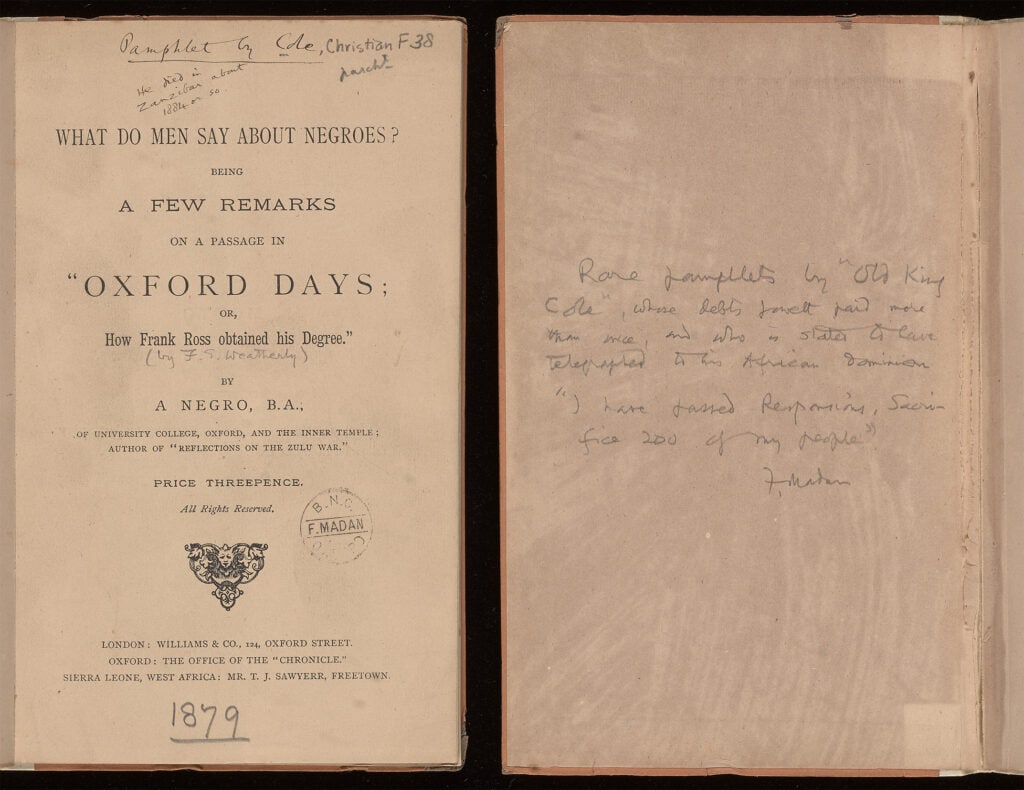 Pamphlet by Cole, Christian F 38
He died in
Zanzibar about
1884 or so.
WHAT DO MEN SAY ABOUT NEGROES?
BEING
A FEW REMARKS
ON A PASSAGE IN
"OXFORD DAYS;
OR,
How Frank Ross obtained his Degree."
(by F. E. Weatherly)
BY
A NEGRO, B.A.,
OF UNIVERSITY COLLEGE, OXFORD, AND THE INNER TEMPLE;
AUTHOR OF "REFLECTIONS ON THE ZULU WAR."
PRICE THREEPENCE.
All Rights Reserved.
B.N.C.
F. MADAN
LONDON: WILLIAMS & CO., 124, OXFORD STREET.
OXFORD: THE OFFICE OF THE "CHRONICLE."
SIERRA LEONE, WEST AFRICA: MR. T. J. SAWYERR, FREETOWN.
1879
Rare pamphlets by "Old King
Cole", whose debts Jowett paid more
than once, and who is stated to have
telegraphed to his African Dominion
"I have passed Responsions, Sacri-
fice 200 of my people"
F. Madan